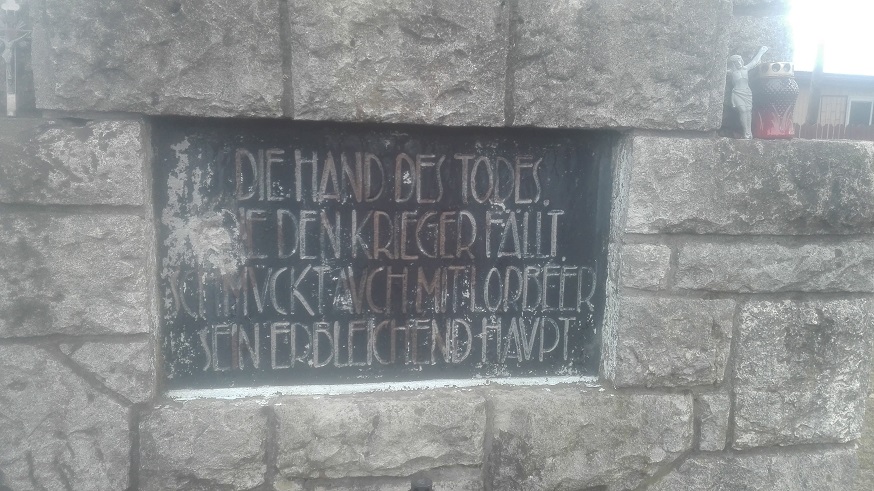 DIE HAND DES TODES,
DIE DEN KRIEGER FÄLLT,
SCHMVCKT AVCH MIT LORBEER
SEIN ERBLEICHEND HAVPT.